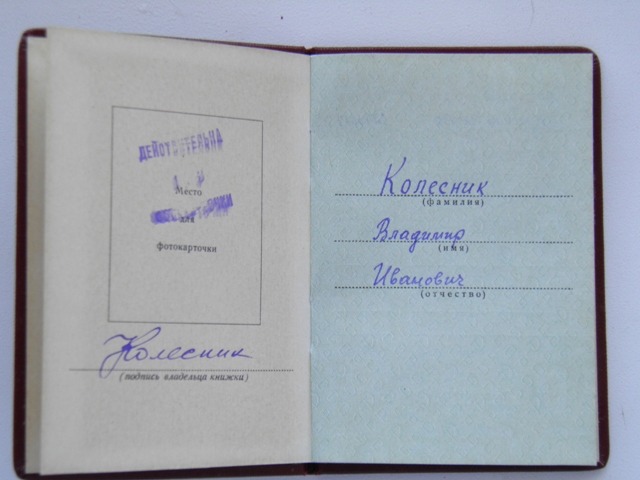 ДЕЙСТВИТЕЛЬНА
Место
для
фотокарточки
Колесник
(подпись владельца книжки)
Колесник
(фамилия)
Владимир
(имя)
Иванович
(отчество)